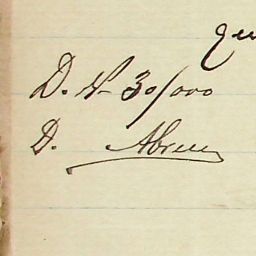 D. N- 30/000
D. Abreu